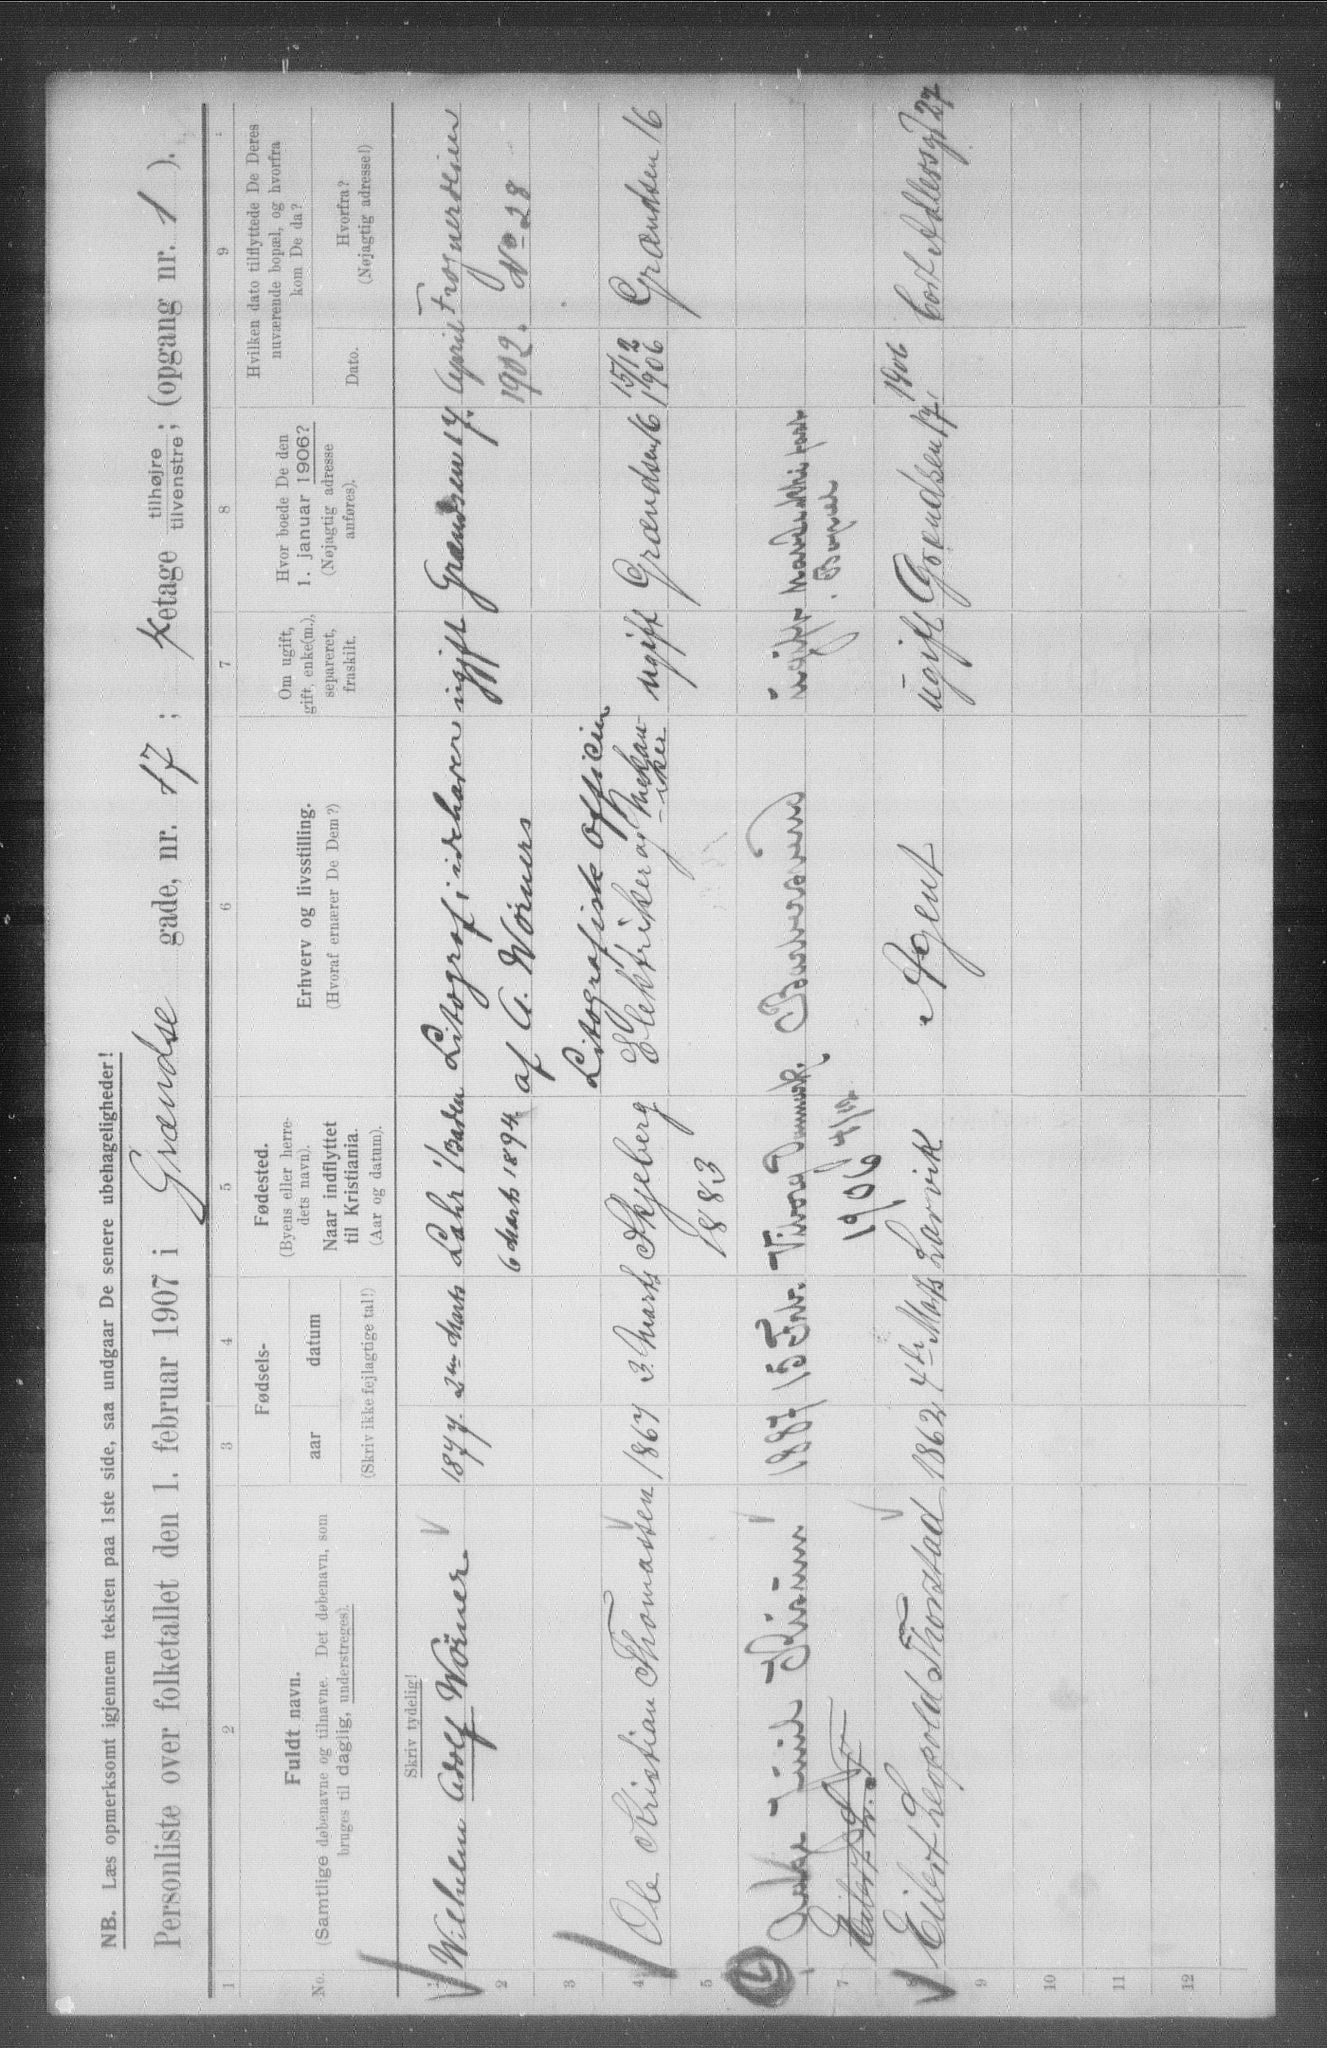 NB. Læs opmerksomt igjennem teksten paa 1ste side, saa undgaar De senere ubehageligheder!
Personliste over folketallet den 1. februar 1907 i Grændse gade, nr. 17; etage tilhøjre tilvenstre; (opgang nr. 1).
1 2 3 4 5 6 7 8 9
No.
Fuldt navn.
(Samtlige døbenavne og tilnavne. Det døbenavn, som
bruges til daglig, understreges).
Fødsels-
aar datum
(Skriv ikke fejlagtige tal!)
Fødested.
(Byens eller herre-
dets navn).
Naar indflyttet
til Kristiania.
(Aar og datum).
Erhverv og livsstilling.
(Hvoraf ernærer De Dem?)
Om ugift,
gift, enke(m.),
separeret,
fraskilt.
Hvor boede De den
1. januar 1906?
(Nøjagtig adresse
anføres).
Hvilken dato tilflyttede De Deres
nuværende bopæl, og hvorfra
kom De da?
Dato.
Hvorfra?
(Nøjagtig adresse!)
Skriv tydelig!
1 Wilhelm Adolf Wörner 1877 2den Marts Lahr i/Baden Litograf, indehaver ugift Grændsen 17. April Frognerveien
2 6 Marts 1894 af A. Wörners 1902. No 28
3 Litografisk Officin
4 Ole Kristian Thomassen 1867 3. Marts Skjeberg Elektriker og Mekan-iker ugift Grændsen 16 15/12 1906 Grændsen 16
5 1883
6 1887 15 Febr. Viborg Danmark. ugift
7 1906
8 Eilert Leopold Thorstad 1862 4de Marts Larvik Agent ugift Grændsen 17. 1906 Cort Adlersgd 27
9
10
11
12